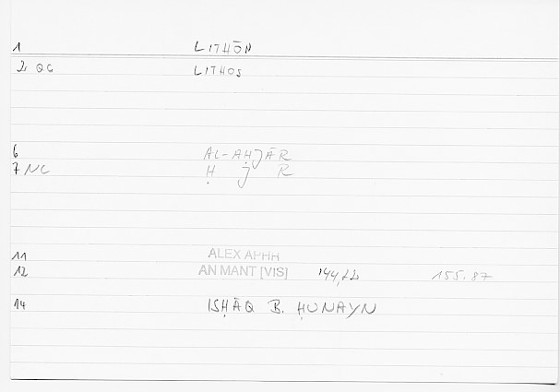 1 LITHŌN
2 QC LITHOS
6 AL-AḤJĀR
7 NC Ḥ J R
11 ALEX APHR
12 AN MANT [VIS] 144,22 155,87
14 ISḤĀQ B. ḤUNAYN